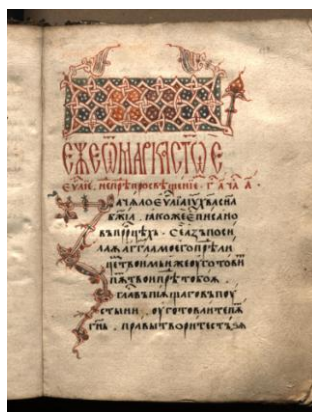 ЕЖЕ Ѿ МАРКА СТОЕ
ЕѴЛЇЕ. НЕПРѢ ПРОСВѢЩЕНІЕ. Г҃ЛА҃ А҃.
ЗАЧѦЛО ЕѴЛЇА ІУ ХВА СНА
БЖЇА. ІАКОЖЕ Е ПИСАНО
ВЪ ПРРЦѢХЪ. СЕ АЗЪ ПОСИ
ЛАѦ АГГЛА МОЕГО ПРѢ ЛИ
ЦЕ ТВОИМЪ ИЖЕ ОУГОТОВИ
ПѪ ТВОИ ПРѢ ТОБОѪ.
ГЛА ВЪПІѪЩАГО ВЪ ПОУ
СТЫНИ. ОУГОТОВАИТЕ ПѪ
ГНЬ. ПРАВЫ ТВОРИТЕ СТЬЗѦ